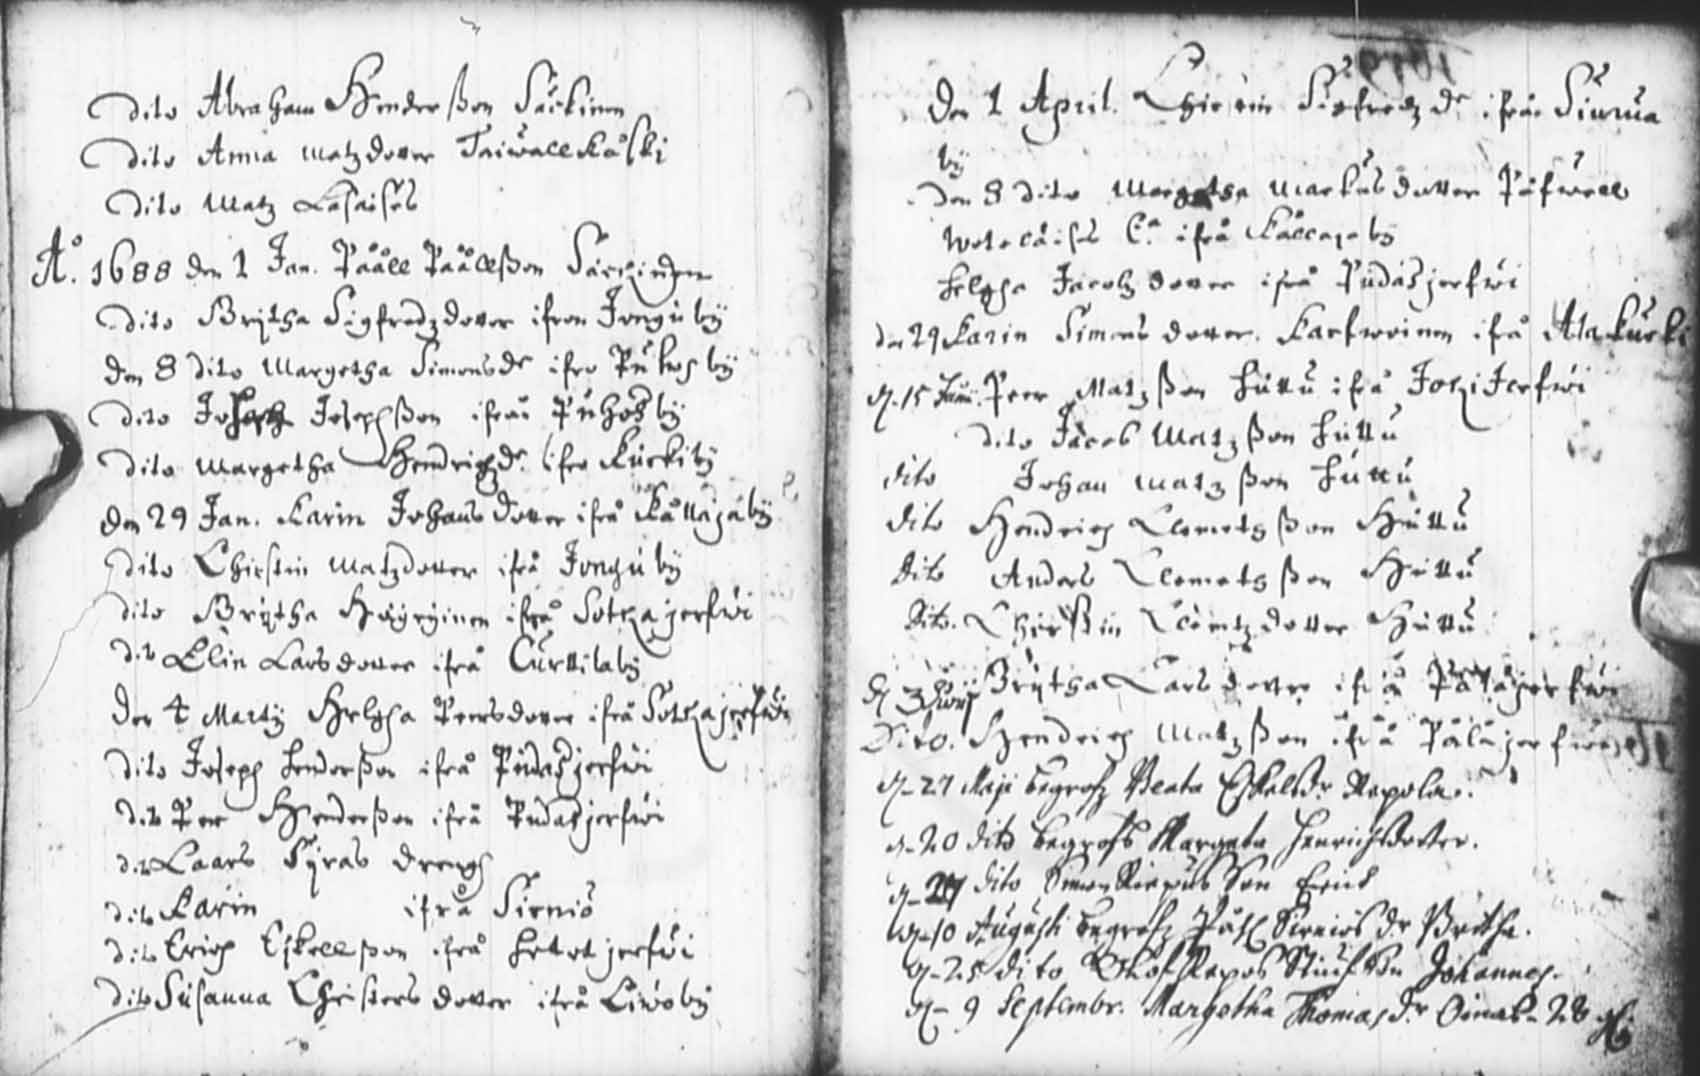 Dito Abraham Hinderßon Särkinen
Dito Anna Matzdotter Taiwallkåski
Dito Matz Lasaises
Aº. 1688 den 1 Jan. Påål Påålßon Särkinen
Dito Brijtha Sigfredzdotter ifron Jongu bÿ
Den 8 dito Margetha Simonsdr ifro Pukos bÿ
Dito Josephßon ifrån Puhos bÿ
Dito Margetha Hendrichzdr. ifro Kurkibÿ
Den 29 Jan. Karin Johansdotter ifrå Kåttajabÿ
Dito Chirstin Matzdotter ifrå Jongubÿ
Dito Brijtha Häÿrÿinen ifrå Sotkajerfwi
dito Elin Larsdotter ifrå Curttilabÿ
Den 4 Martÿ Helgha Peersdotter ifrå Sotkajerfwi
Dito Joseph Henderßon ifrå Pudasjerfwi
Dito Per Henderßon ifrå Pudasjerfwi
dito Laars Sÿras drengh
dito Karin ifrå Sirniö
dito Erich Eskellßon ifrå jerfwi
Dito Susanna Christersdotter ifrå Liwobÿ
Den 1 April. Chirstin Sigfredzdr ifrån Siurua
bÿ
Den 8 dito Margetha Markusdotter
ifrå Kållajabÿ
Helgha Jacobzdotter ifrå Pudasjerfwi
den 29 Karin Simonsdotter. Karfwoinen ifrå Alakurki
d. 15 Peer Matzßon Huttu ifrå Jokijerfwi
dito Jacob Matzßon Huttu
dito Johan Matzßon Huttu
dito Hendrich Clemetzßon Huttu
dito Anders Clemetzßon Huttu
dito. Chirstin Clemetzdotter Huttu
d. 3 Brijtha Larsdotter ifrå
Dito. Hendrich Matzßon ifrå
d. 27 Maji begrofz Beata Eskelsdr Repola.
d. 20 dito begrofs Margeta Henrichsdotter.
d. dito Simon Son Erich
d. 10 Augusti begrofz Sirniös dr Britha.
d. 25 dito Son Johannes.
d. 9 Septembr. Margetha Thomasdr. Oinas. 28